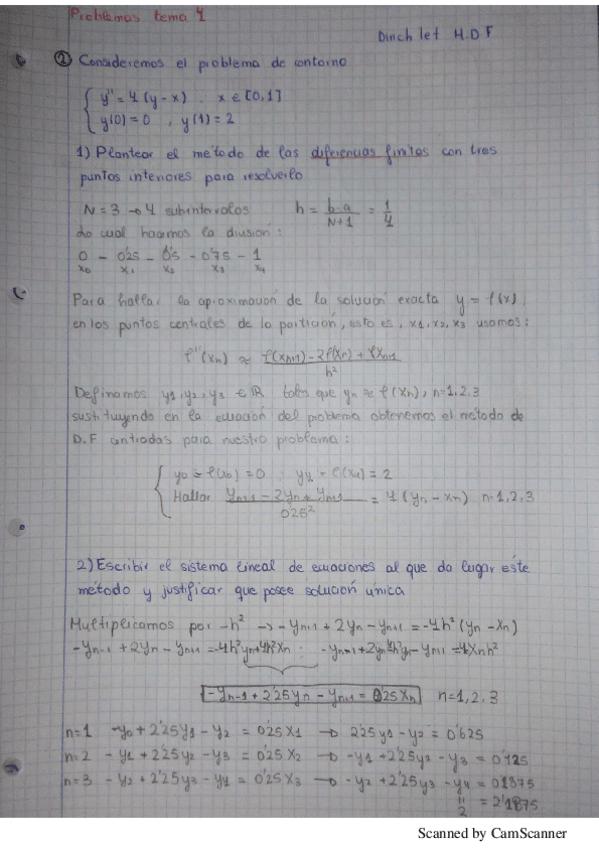 Problemas tema 4
Dirichlet M.D.F
② Consideremos el problema de contorno
{ y'' = 4(y-x) . x ∈ [0,1]
y(0)=0 , y(1)=2
1) Plantear el método de las diferencias finitas con tres
puntos interiores para resolverlo
N=3 → 4 subintervalos h = b-a/N+1 = 1/4
lo cual hacemos la división:
0 - 0'25 - 0'5 - 0'75 - 1
x0 x1 x2 x3 x4
Para hallar la aproximación de la solución exacta y = f(x),
en los puntos centrales de la partición, esto es, x1, x2, x3 usamos:
f''(xn) ≈ f(xn+1) - 2f(xn) + f(xn-1) / h²
Definamos y1, y2, y3 ∈ ℝ tales que yn ≈ f(xn), n=1,2,3
sustituyendo en la ecuación del problema obtenemos el método de
D.F centradas para nuestro problema:
{ y0 = f(x0) = 0 ; y4 = f(x4) = 2
Hallar yn+1 - 2yn + yn-1 / 0'25² = 4(yn - xn) n=1,2,3
2) Escribir el sistema lineal de ecuaciones al que da lugar este
método y justificar que posee solución única
Multiplicamos por -h² → -yn-1 + 2yn - yn+1 = -4h²(yn - xn)
-yn-1 + 2yn - yn+1 = -4h²yn + 4h²xn ; -yn-1 + 2yn + 4h²yn - yn+1 = 4xnh²
-yn-1 + 2'25yn - yn+1 = 0'25xn n=1,2,3
n=1 -y0 + 2'25y1 - y2 = 0'25x1 → 2'25y1 - y2 = 0'0625
n=2 - y1 + 2'25y2 - y3 = 0'25x2 → -y1 + 2'25y2 - y3 = 0'125
n=3 - y2 + 2'25y3 - y4 = 0'25x3 → -y2 + 2'25y3 - y4 = 0'1875
"
2 = 2'1875
Scanned by CamScanner